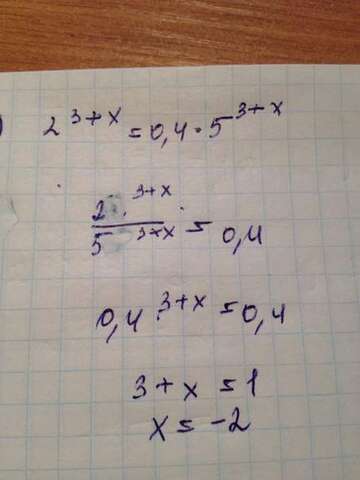 ) 2^{3+x} = 0,4 · 5^{3+x}
2^{3+x} / 5^{3+x} = 0,4
0,4^{3+x} = 0,4
3 + x = 1
x = -2